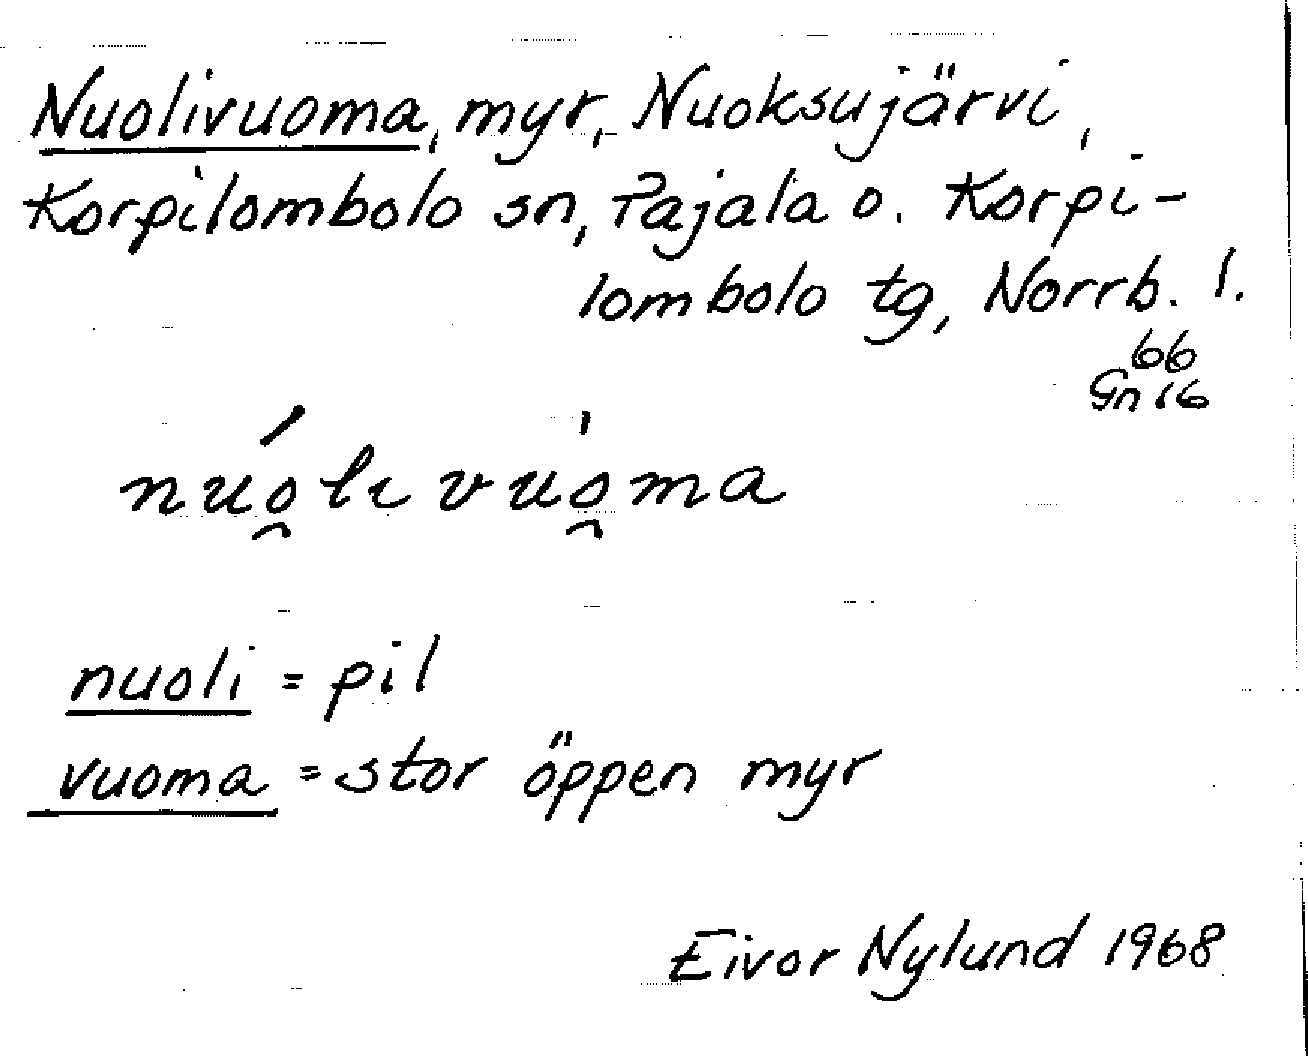 Nuolivuoma, myr, Nuoksujärvi,
Korpilombolo sn, Pajala o. Korpi-
lombolo tg, Norrb. l.
66
Gn 16
núo̯li vu̍o̯ma
nuoli = pil
vuoma = stor öppen myr
Eivor Nylund 1968